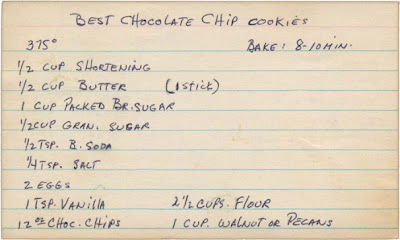 BEST CHOCOLATE CHIP COOKIES
375° BAKE: 8-10 MIN.
1/2 CUP SHORTENING
1/2 CUP BUTTER (1 STICK)
1 CUP PACKED BR. SUGAR
1/2 CUP GRAN. SUGAR
1/2 TSP. B. SODA
1/4 TSP. SALT
2 EGGS
1 TSP. VANILLA 2 1/2 CUPS. FLOUR
12 OZ CHOC. CHIPS 1 CUP. WALNUT OR PECANS